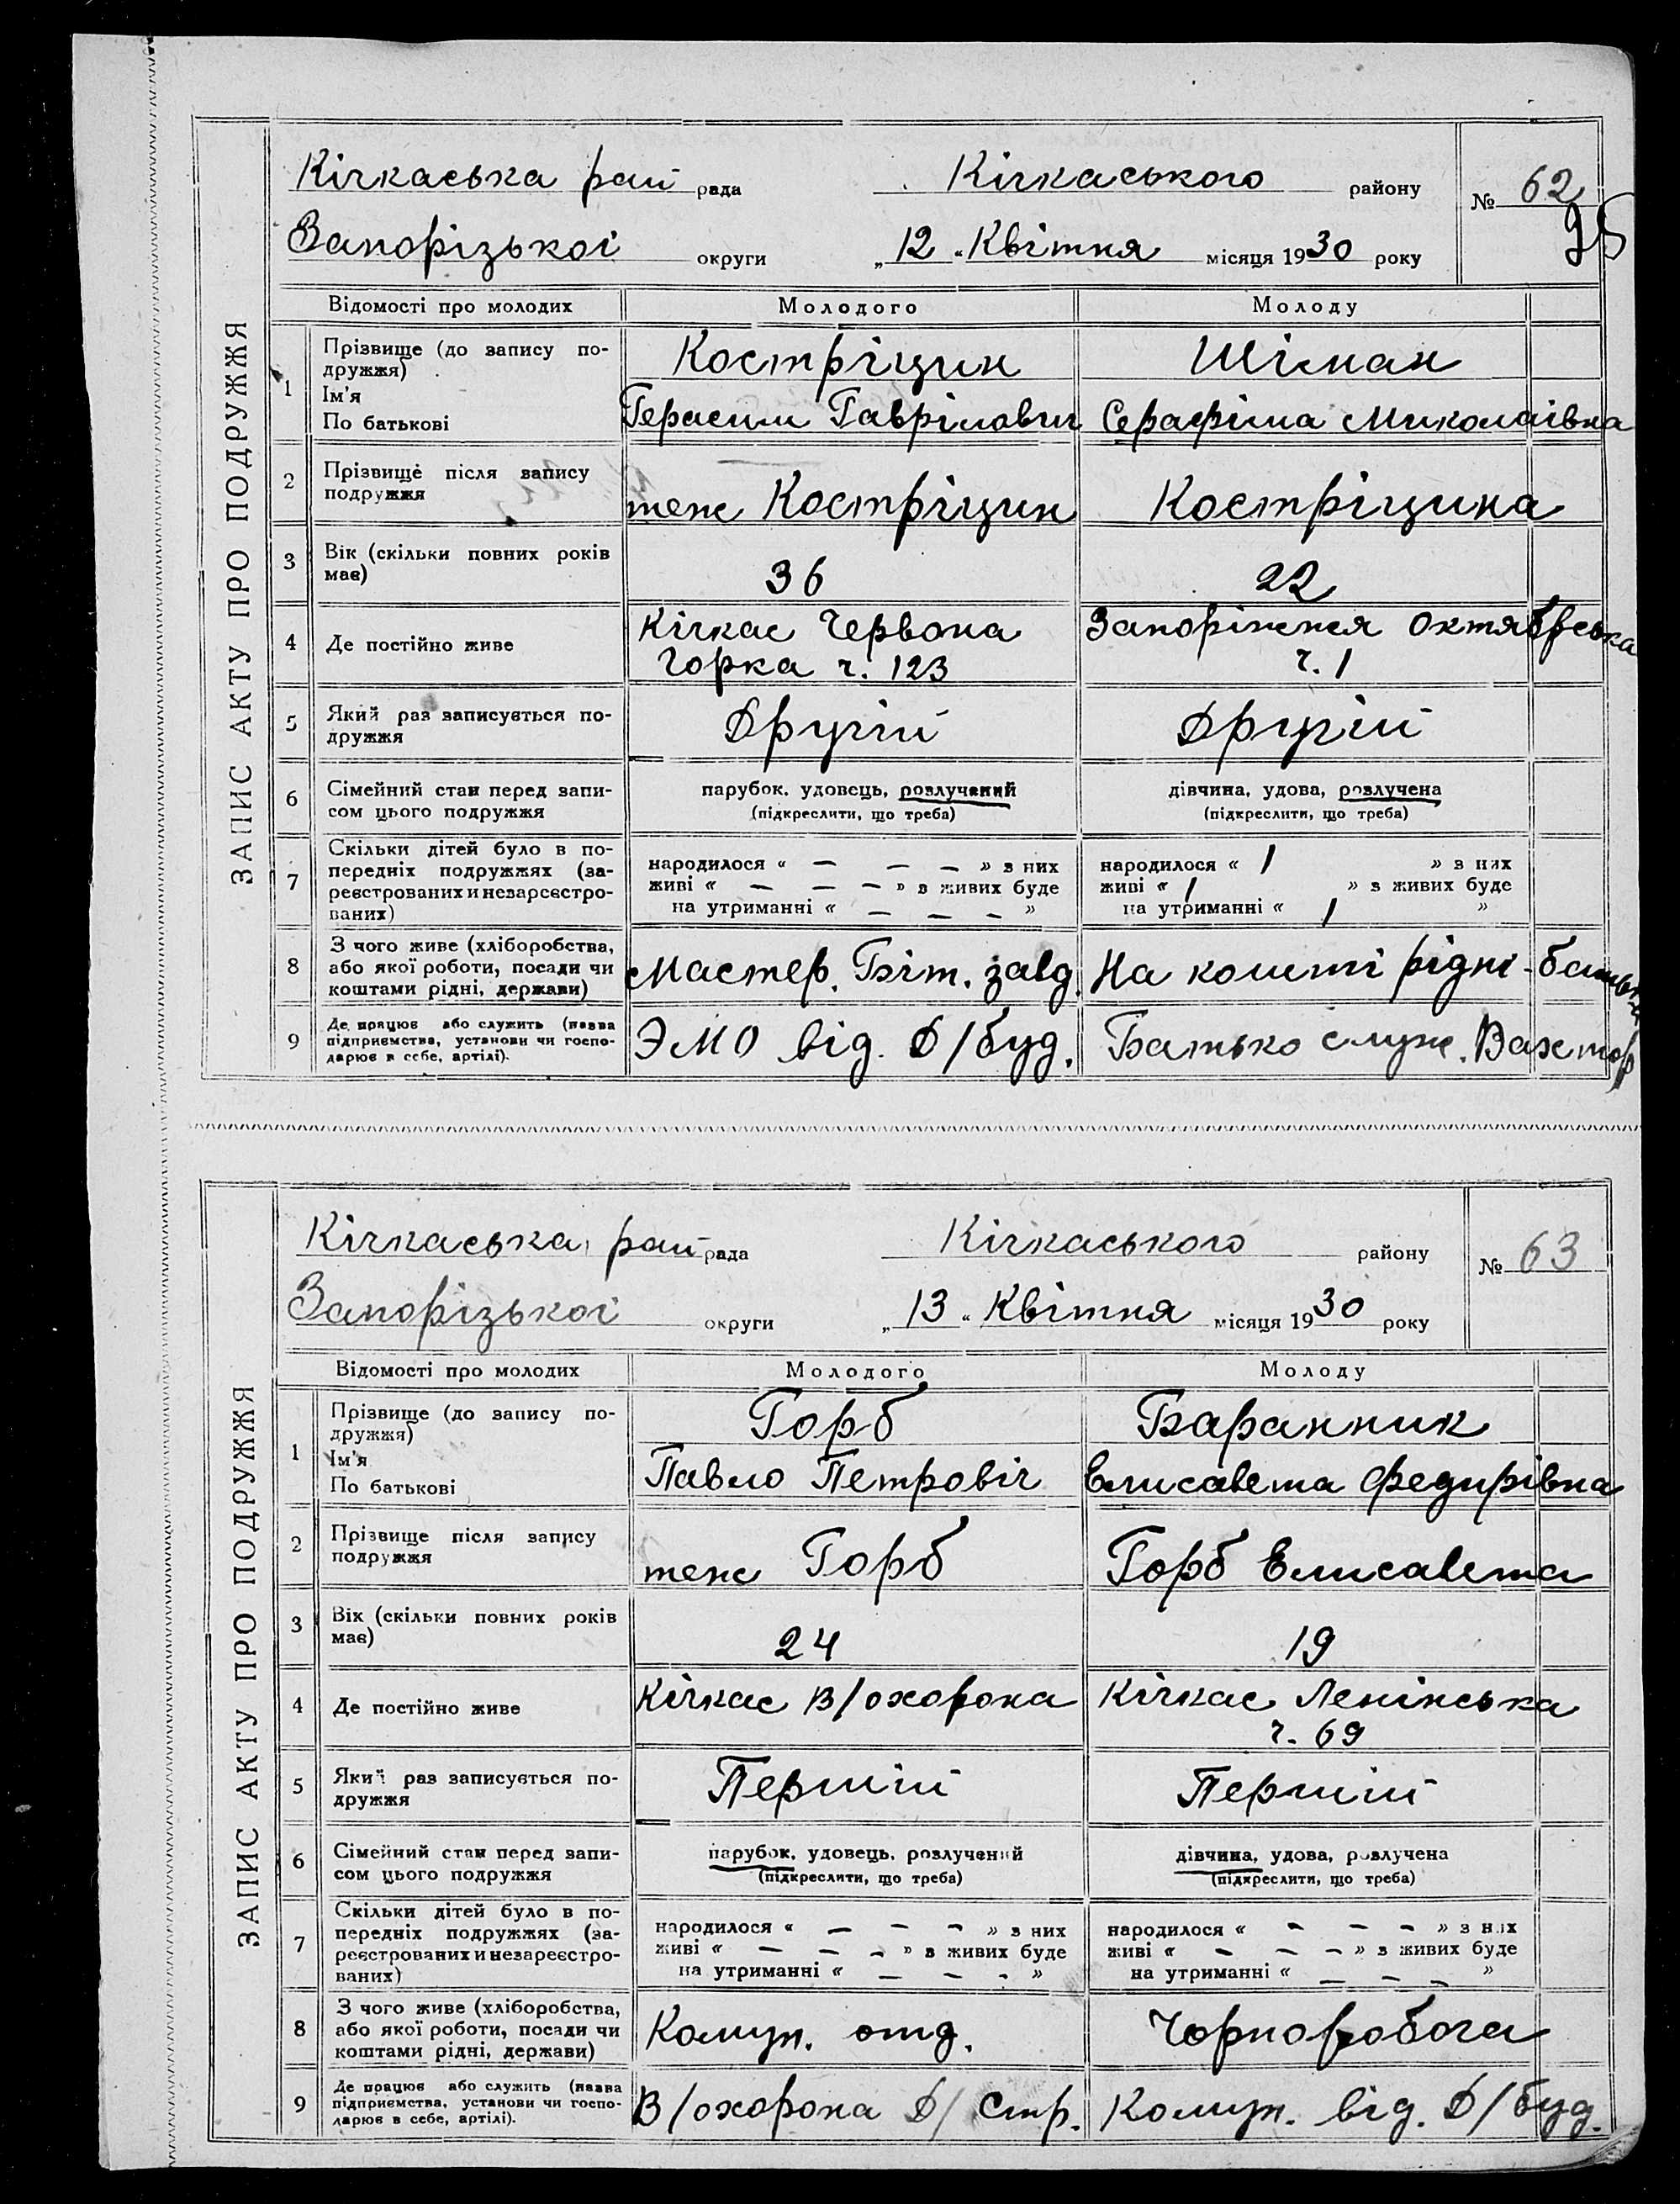 ЗАПИС АКТУ ПРО ПОДРУЖЖЯ
Кічкаська рай рада Кічкаського району № 62
95
Запорізької округи „ 12 “ Квітня місяця 1930 року
Відомості про молодих Молодого Молоду
1 Прізвище (до запису по-
дружжя)
Ім'я
По батькові
Костріцин Шіман
Герасим Гаврілович Серафіма Миколаівна
2 Прізвище після запису
подружжя
теж Костріцин Костріцина
3 Вік (скільки повних років
має)
36 22
4 Де постійно живе
Кічкас Червона Запоріжжя Октябрська
Горка ч. 123 ч. 1
5 Який раз записується по-
дружжя
Другій Другій
6 Сімейний стан перед запи-
сом цього подружжя
парубок, удовець, розлучений дівчина, удова, розлучена
(підкреслити, що треба) (підкреслити, що треба)
7 Скільки дітей було в по-
передніх подружжях (за-
реєстрованих и незареєстро-
ваних)
народилося « — — — » з них народилося « 1 » з них
живі « — — — » з живих буде живі « 1 » з живих буде
на утриманні « — — — » на утриманні « 1 »
8 З чого живе (хліборобства,
або якої роботи, посади чи
коштами рідні, держави)
Мастер. Біт. завд. На кошті рідні - батька
9 Де працює або служить (назва
підприємства, установи чи госпо-
дарює в себе, артілі).
ЭМО від. Д/буд. Батько служ. Вахтор
ЗАПИС АКТУ ПРО ПОДРУЖЖЯ
Кічкаська рай рада Кічкаського району № 63
Запорізької округи „ 13 “ Квітня місяця 1930 року
Відомості про молодих Молодого Молоду
1 Прізвище (до запису по-
дружжя)
Ім'я
По батькові
Горб Баранник
Павло Петровіч Елисавета Федирівна
2 Прізвище після запису
подружжя
теж Горб Горб Елисавета
3 Вік (скільки повних років
має)
24 19
4 Де постійно живе
Кічкас В/охорона Кічкас Ленінська
ч. 69
5 Який раз записується по-
дружжя
Першій Першій
6 Сімейний стан перед запи-
сом цього подружжя
парубок, удовець, розлучений дівчина, удова, розлучена
(підкреслити, що треба) (підкреслити, що треба)
7 Скільки дітей було в по-
передніх подружжях (за-
реєстрованих и незареєстро-
ваних)
народилося « — — — » з них народилося « — — — » з них
живі « — — — » з живих буде живі « — — — » з живих буде
на утриманні « — — — » на утриманні « — — — »
8 З чого живе (хліборобства,
або якої роботи, посади чи
коштами рідні, держави)
Комун. отд. Чорноробоча
9 Де працює або служить (назва
підприємства, установи чи госпо-
дарює в себе, артілі).
В/охорона Д/Стр. Комун. від. Д/буд.